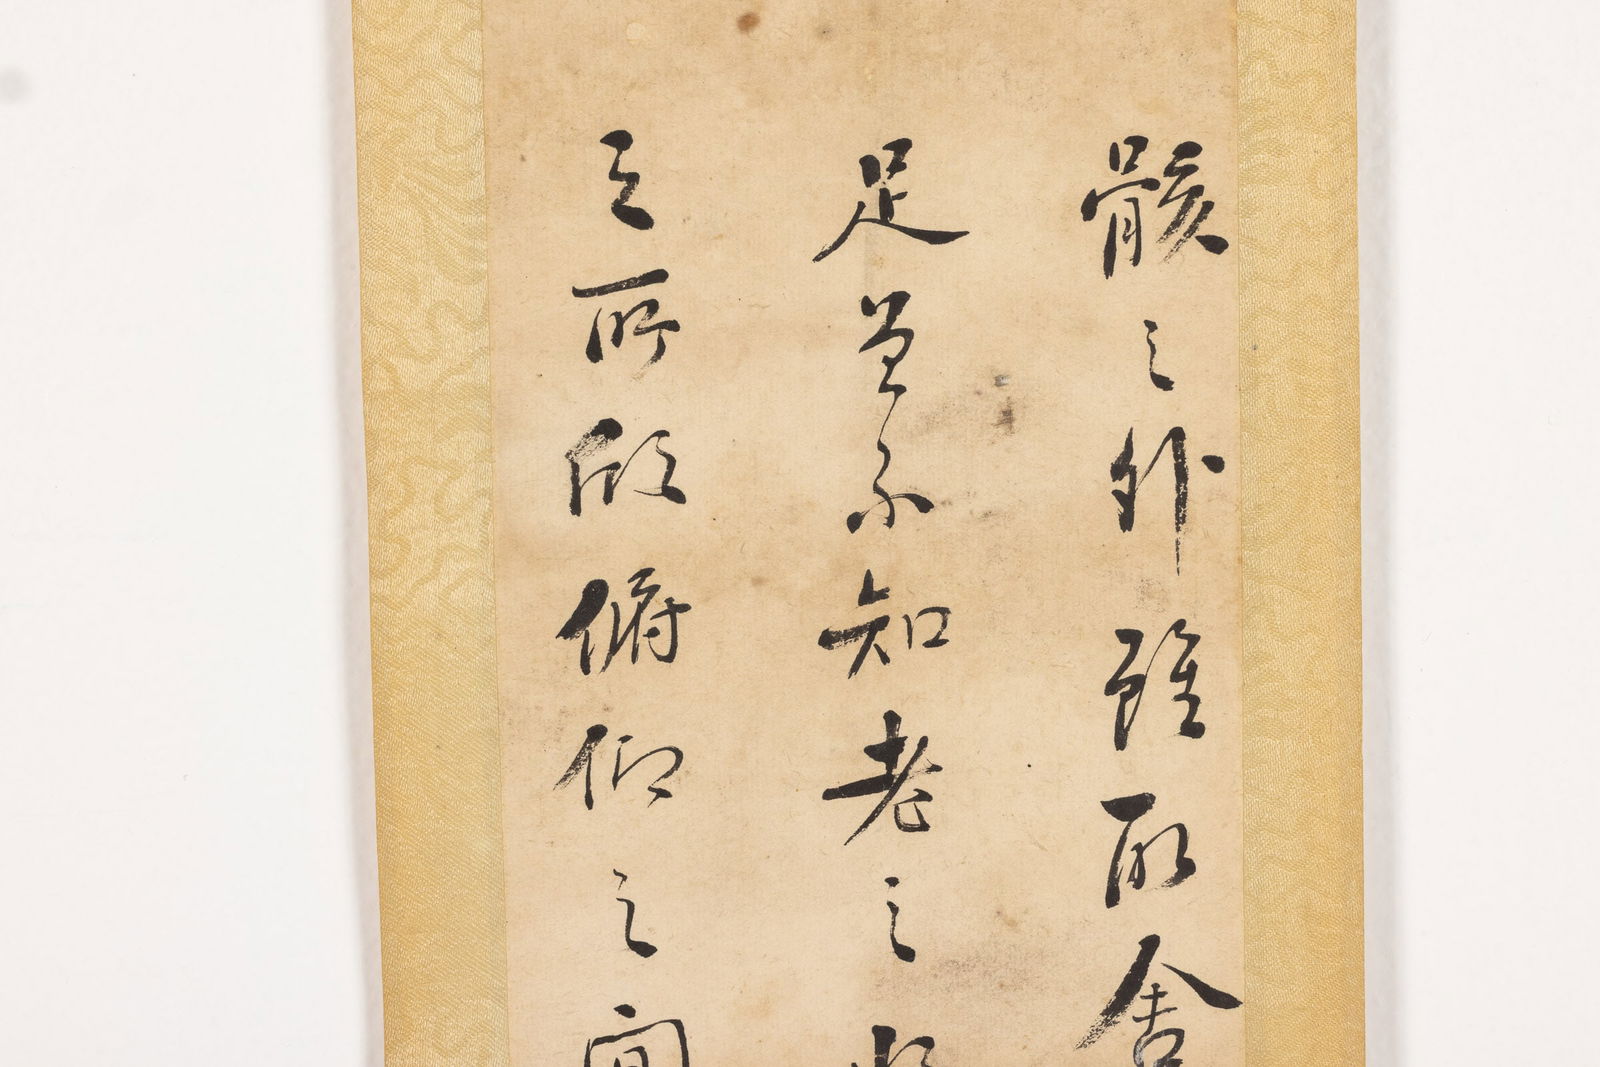 骸之外雖取舍
足曾不知老之將
之所欣俯仰之間